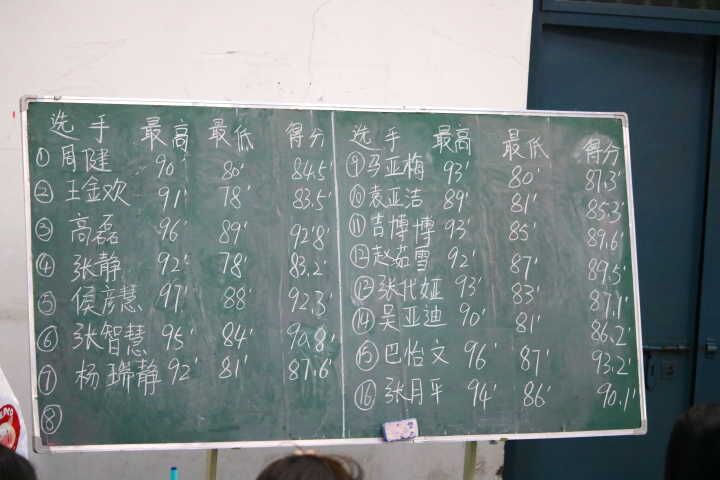 选手 最高 最低 得分
① 周健 90' 80' 84.5'
② 王金欢 91' 78' 83.5'
③ 高磊 96' 89' 92'8'
④ 张静 92' 78' 83.2'
⑤ 侯彦慧 97' 88' 92.3'
⑥ 张智慧 95' 84' 90.8'
⑦ 杨瑞静 92' 81' 87.6'
⑧
选手 最高 最低 得分
⑨ 马亚梅 93' 80' 87.3'
⑩ 袁亚洁 89' 81' 85.3'
⑪ 吉博博 93' 85' 89.6'
⑫ 赵茹雪 92' 87' 89.5'
⑬ 张代娅 93' 83' 87.1'
⑭ 吴亚迪 90' 81' 86.2'
⑮ 巴怡文 96' 87' 93.2'
⑯ 张月平 94' 86' 90.1'